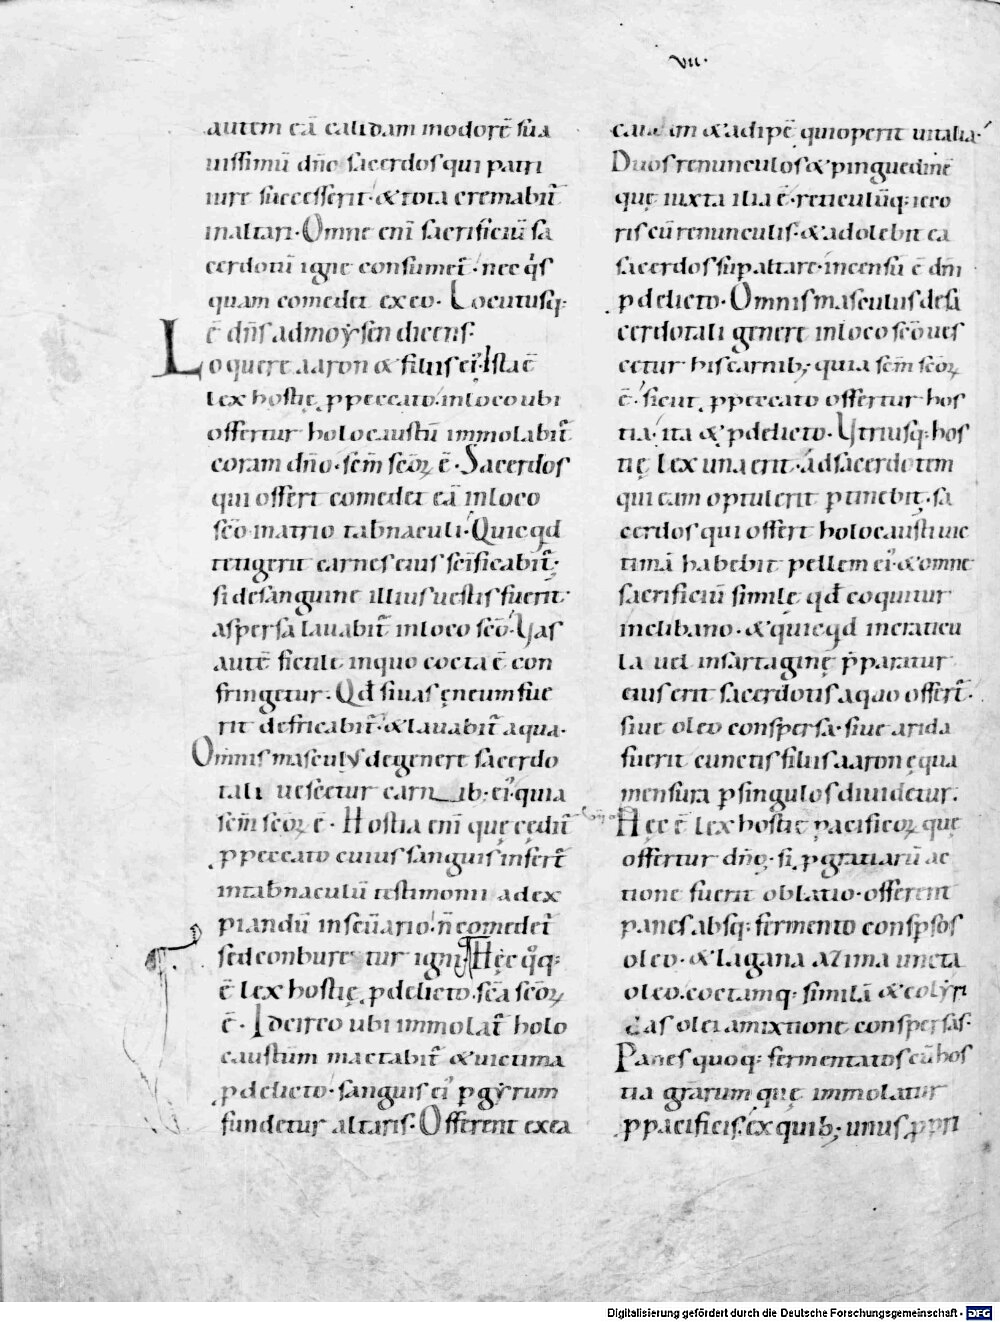 vii·
autem eā calidam in odorē sua
uissimū dn̄o sacerdos qui patri
iure successerit· & tota cremabit̄
in altari· Omne eni̅ sacrificiū sa
cerdotū igne consumet̄· nec q̊s
quam comedet ex eo· Locutusq;
ē dn̄s ad moẏsen dicens·
Loquere aaron & filiis ei᾽· Ista ē
lex hostię p peccato· in loco ubi
offertur holocaustū immolabit̄
coram dn̄o· sc̄m sc̄oꝝ ē· Sacerdos
qui offert comedet eā in loco
sc̄o in atrio tab̄naculi· Quicq̄d
tetigerit carnes eius sc̄ificabit̄;
si de sanguine illius uestis fuerit
aspersa lauabit̄ in loco sc̄o· Vas
autē fictile in quo cocta ē con
fringetur· Qd̄ si uas ęneum fue
rit defricabit̄· & lauabit̄ aqua·
Omnis masculus de genere sacerdo
tali uescetur carnib; ei᾽· quia
sc̄m sc̄oꝝ ē· Hostia eni̅ quę cędit̄
p peccato cuius sanguis infert̄
in tab̄naculū testimonii ad ex
piandū in sc̄uario· n̄ comedet̄
sed comburetur igni· Hęc q̊q;
ē lex hostię p delicto· sc̄a sc̄oꝝ
ē· Idcirco ubi immolat̄ holo
caustum mactabit̄ & uictima
p delicto· sanguis ei᾽ p gẏrum
fundetur altaris· Offerent ex ea
caudam & adipē qui operit uitalia·
Duos renunculos & pinguedinē
quę iuxta ilia ē· reticulūq; ieco
ris cū renunculis· & adolebit ea
sacerdos sup altare· incensū ē dn̄i
p delicto· Omnis masculus de sa
cerdotali genere in loco sc̄o ues
cetur his carnib; quia sc̄m sc̄oꝝ
ē· sicut p peccato offertur hos
tia· ita & p delicto· Vtriusq; hos
tię lex una erit· ad sacerdotem
qui eam optulerit ptinebit· sa
cerdos qui offert holocausti uic
timā habebit pellem ei᾽· & omne
sacrificiū similę qd̄ coquitur
in clibano· & quicq̄d in craticu
la uel in sartaginę p̄paratur
eius erit sacerdotis a quo offert̄·
siue oleo conspersa· siue arida
fuerit cunctis filiis aaron ęqua
mensura p singulos diuidetur·
Hęc ē lex hostię pacificoꝝ quę
offertur dn̄o· si p gratiarū ac
tione fuerit oblatio· offerent
panes absq; fermento conspsos
oleo· & lagana azima uncta
oleo· coctamq; similā & colẏri
das olei amixtione conspersas·
Panes quoq; fermentatos cū hos
tia gr̄arum quę immolatur
p pacificis· ex quib; unus p pri
Digitalisierung gefördert durch die Deutsche Forschungsgemeinschaft · DFG